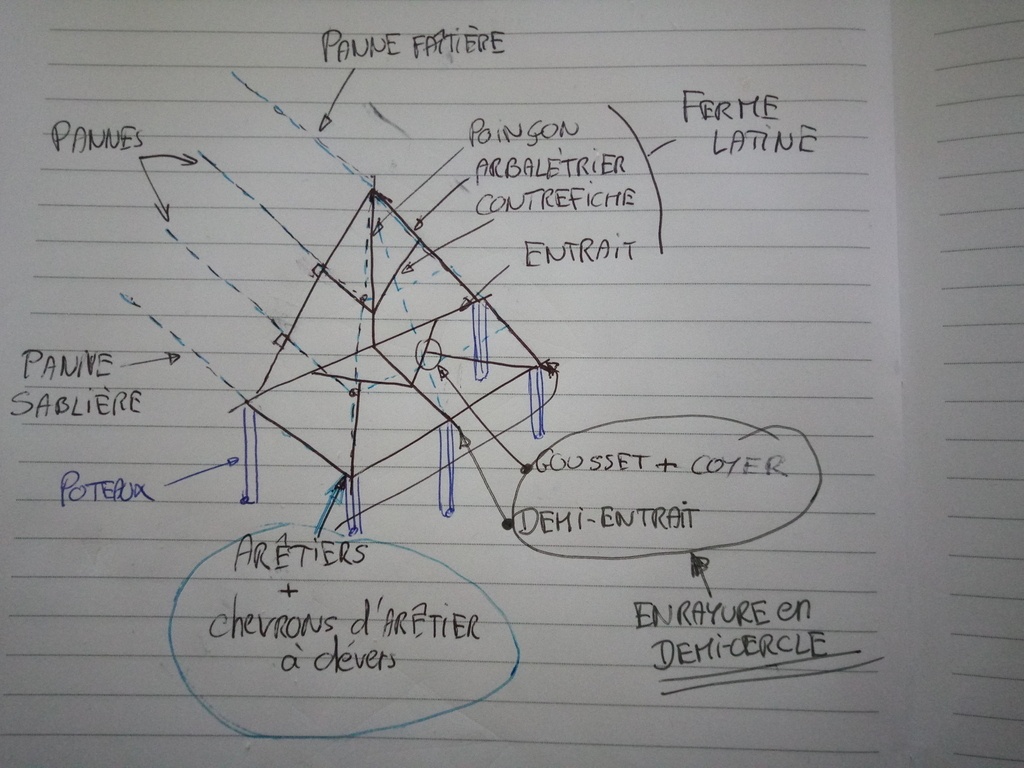 PANNE FAÎTIÈRE
PANNES
POINÇON
ARBALÉTRIER
CONTREFICHE
ENTRAIT
FERME
LATINE
PANNE
SABLIÈRE
POTEAUX
GOUSSET + COYER
DEMI-ENTRAIT
ARÊTIERS
+
chevrons d'ARÊTIER
à dévers
ENRAYURE en
DEMI-CERCLE